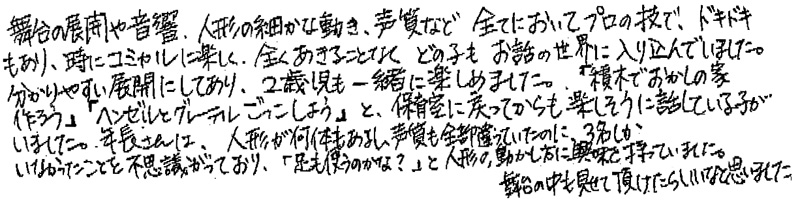 舞台の展開や音響、人形の細かな動き、声質など 全てにおいてプロの技で、ドキドキ
もあり、時にコミカルに楽しく、全くあきることなく どの子も お話の世界に入り込んでいました。
分かりやすい展開にしてあり、2歳児も一緒に楽しめました。「積木でおかしの家
作ろう」「ヘンゼルとグレーテルごっこしよう」と、保育室に戻ってからも楽しそうに話している子が
いました。年長さんは、人形が何体もあるし、声質も全部違っていたのに、3名しか
いなかったことを不思議がっており、「足も使うのかな？」と人形の動かし方に興味を持っていました。
舞台の中も見せて頂けたらいいなと思いました。